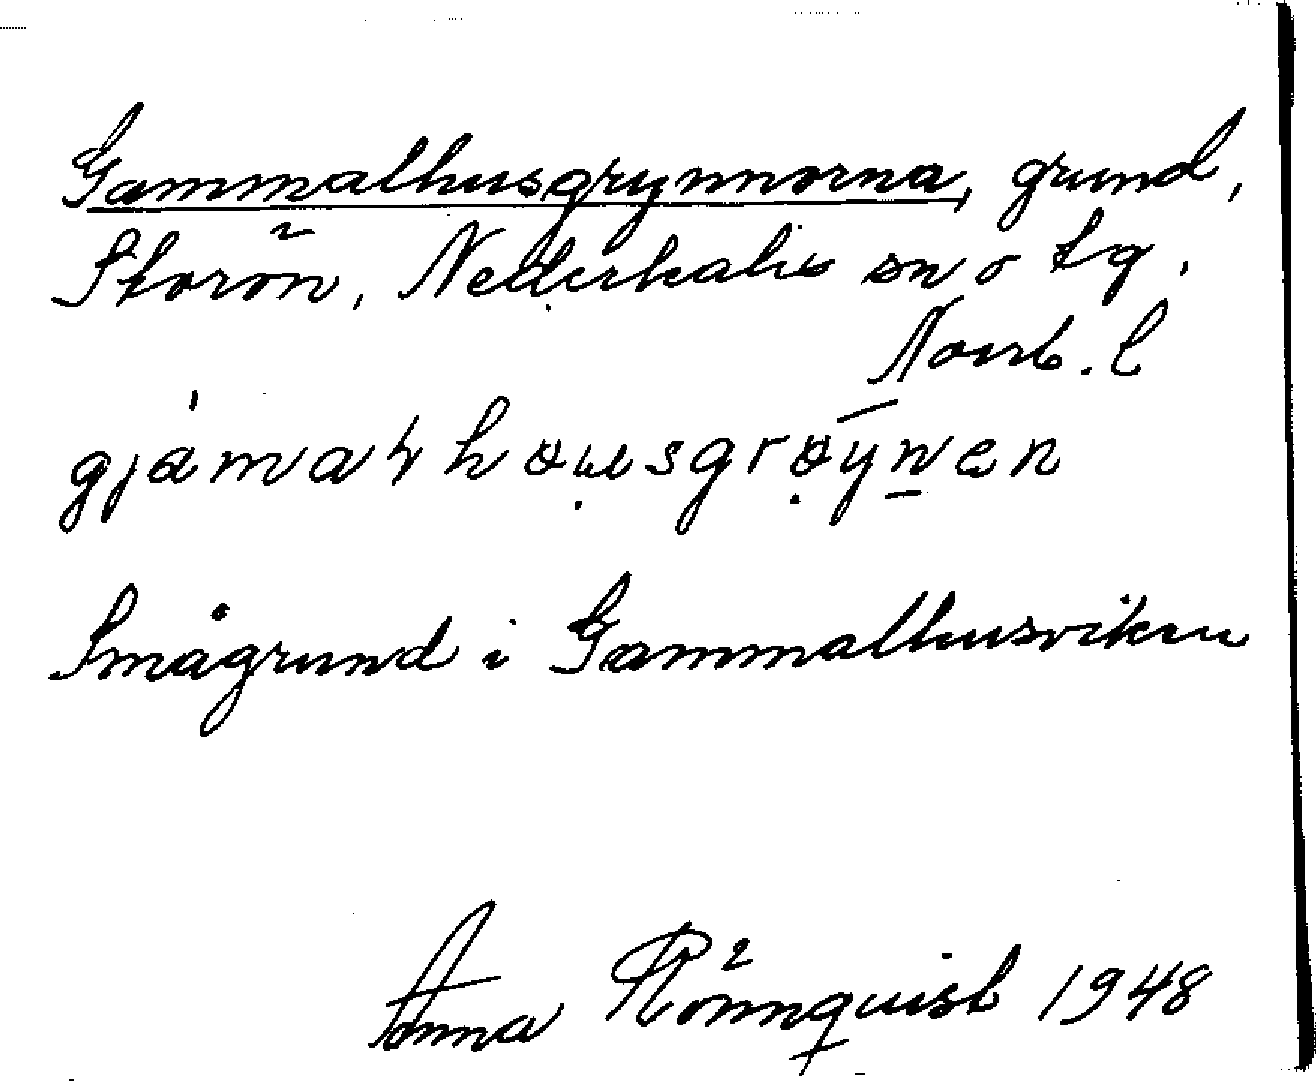 Gammalhusgrynnorna, grund,
Storön, Nederkalix sn o tg,
Norrb. l
Smågrund i Gammalhusviken
Anna Rönnquist 1948